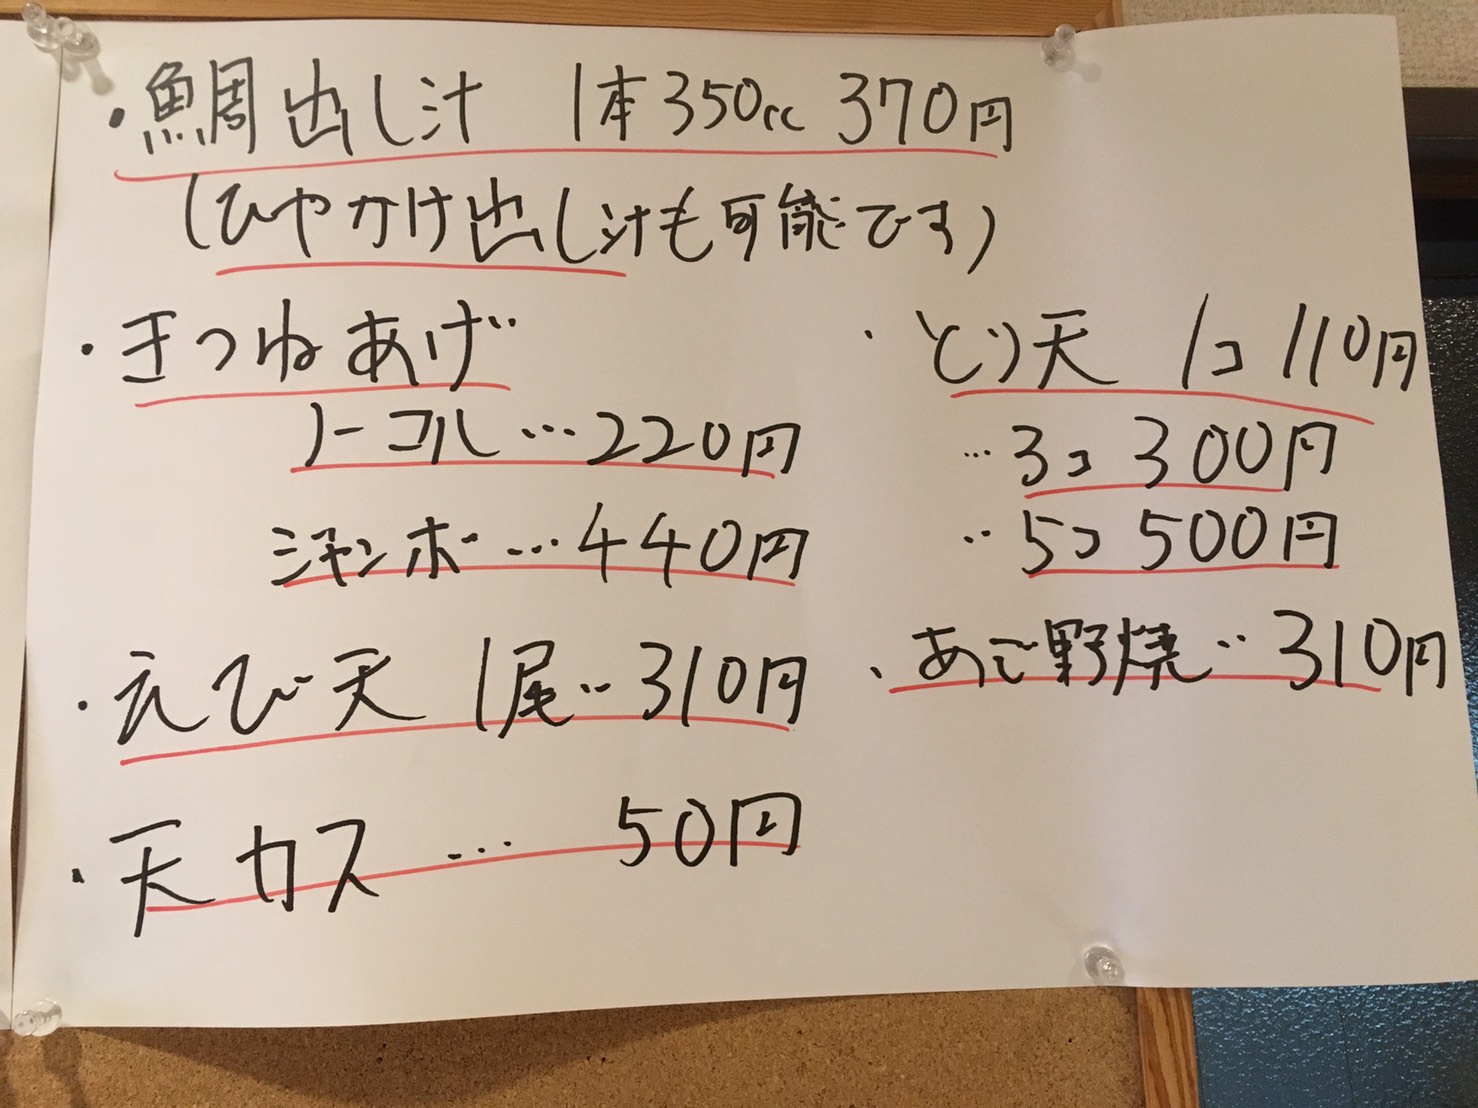 ・鯛出し汁 1本350cc 370円
(ひやかけ出し汁も可能です)
・きつねあげ
ノーマル…220円
ジャンボ…440円
・えび天 1尾‥310円
・天カス… 50円
・とり天 1コ 110円
…3コ 300円
‥5コ 500円
・あご野焼‥310円